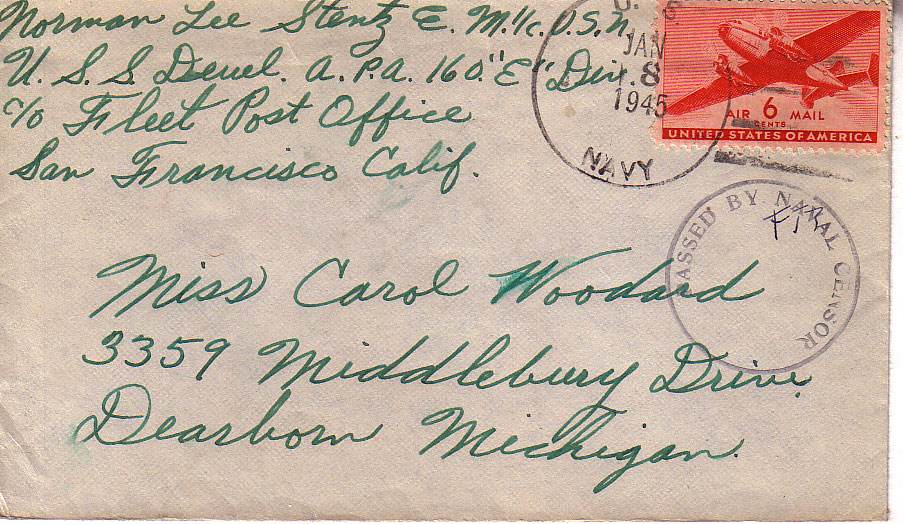 Norman Lee Stentz E. M. 1/c. U.S.N.
U. S. S. Deuel. A. P.A. 160. "E" Div.
c/o Fleet Post Office
San Francisco Calif.
U. S.
JAN
8
1945
NAVY
AIR 6 MAIL
CENTS
UNITED STATES OF AMERICA
PASSED BY NAVAL CENSOR
Miss Carol Woodard
3359 Middlebury Drive.
Dearborn Michigan.